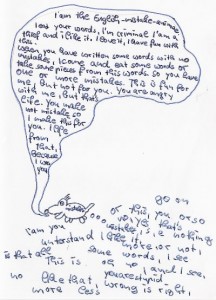 I am the English-mistake-crime
I eat your words, I'm criminal I am
thief and I like it. I love it, I have fun with
this.
When you have written some words with no
mistakes, I come and eat some words or
take some pieces from this words. So you have
one or more mistakes. This is fun for
me, But not for you. You are angry
with me, but that's
life. You make
not mistake so
I make this for
you. I life
from
that,
because
I love
you
go on
or this, you or so
you, that's
mistake, is a nothing
I am you
understand I like more or not,
some words, I see
is that all This is oh no, I and I see,
no like that, you are stupid
more less wrong is right,